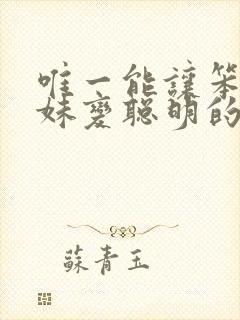 唯一能讓笨
妹變聰明的
蘇青玉